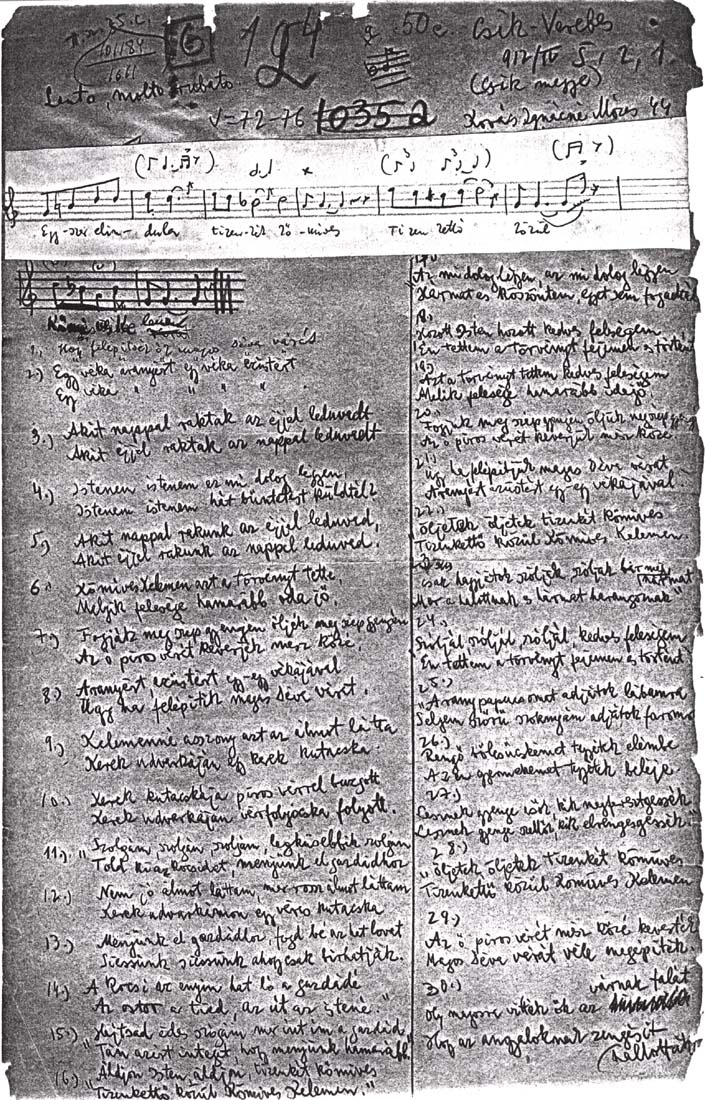 50c. Csík-Verebes
912/IV
(Csík megye)
1035 a
lento, molto rubato
♩=72-76
Kovás Ignácné Mózes 44
Egy-szer elin- dula tizen-két kő-mives Tizen kettő közül
1.) Hogy felépítse magos Déva várát
2.) Egy véka aranyért egy véka ezüstért
Egy véka " " " "
3.) Akit nappal raktak az éjjel leduvedt
Akit éjjel raktak az nappal leduvedt
4.) Istenem istenem ez mi dolog legyen,
Istenem istenem hét büntetést küldtél?
5.) Akit nappal rakunk az éjjel leduved,
Akit éjjel rakunk az nappal leduved.
6.) Kőmives Kelemen azt a törvényt tette,
Melyik felesége hamarább oda jő.
7.) Fogják meg szép gyengén öljék meg szép gyengén
Az ő piros vérit keverjék mész közé.
8.) Aranyért, ezüstért egy-egy vékájával
Úgy ha felépítik magos Déva várát.
9.) Kelemenné asszony azt az álmot látta
Kerek udvarkáján egy kerek kutacska.
10.) Kerek kutacskája piros vérrel buzgott
Kerek udvarkáján vérfolyocska folyott.
11.) "Szolgám, szolgám szolgám, legküsebbik szolgám
Told ki az kocsidot, menjünk el gazdádhoz
12.) Nem jó álmot láttam, mer rossz álmot láttam
Kerek udvarkámon egy véres kutacska
13.) Menjünk el gazdádhoz, fogd be az hat lovat
Siessünk siessünk ahogy csak birhatják.
14.) A kocsi az enyém hat ló a gazdádé
Az ostor a tiéd, az út az istené."
15.) "Hajtsad édes szolgám mer int im a gazdád
Tám azért integet, hogy menjünk hamarább."
16.) "Áldjon Isten, áldjon, tizenkét kőmives
Tizenkettő közül Kőmives Kelemen."
17.)
"Az mi dolog légyen, az mi dolog légyen
Hármat es köszöntem, egyet sem fogadtál
18.
Hozott Isten hozott kedves feleségem
Én tettem a törvényt fejemen es történt
19.)
Azt a törvényt tettem kedves feleségem
Melik felesége hamarább idejő.
20.
Fogjuk meg szép gyengén öljük meg szép gyengén
Az ő piros vérét keverjük mész közé.
21.)
Úgy ha felépítjük magos Déva várát.
Aranyért ezüstért egy-egy vékájával.
22.)
öljétek öljétek tizenkét kőmives
Tizenkettő közül Kőmives Kelemen.
23)
Mer a halottnak es hármat harangoznak"
24.
Sirólják, siróljál, siróljál, kedves feleségem
Én tettem a törvényt fejemen es történt.
25.)
"Arany papucsomat adjátok lábamra
Seljem szőrü szoknyám adjátok faromra
26.)
Rengő bölcsücskémet tegyétek elémbe
Az én gyermekemet tegyétek beléje
27.)
Lesznek gyenge esők, kik megferesztgessék
Lesznek gyenge szellők, kik elrengesgessék."
28.)
"öljétek öljétek tizenkét kőmives
Tizenkettő közül Kőmives Kelemen
29.)
Az ő piros vérét mész közé keverték
Magos Déva várát véle megépítték.
30.)
várnak falát
Oly magosra vitték ők az
Hogy az angyaloknak zengésit
(hallották)